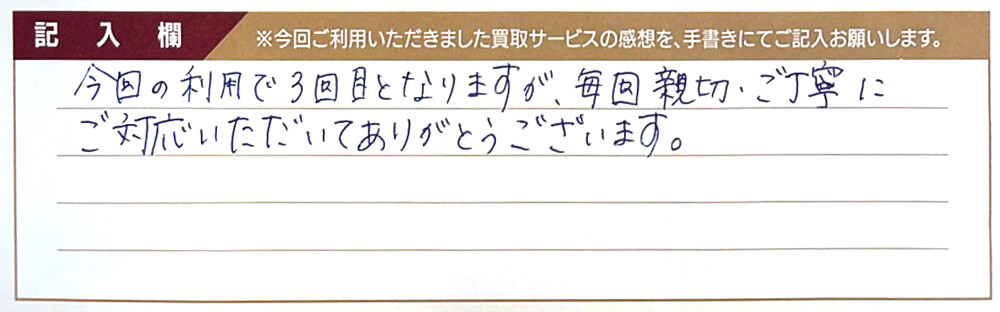 記入欄
※今回ご利用いただきました買取サービスの感想を、手書きにてご記入お願いします。
今回の利用で3回目となりますが、毎回親切・ご丁寧に
ご対応いただいてありがとうございます。